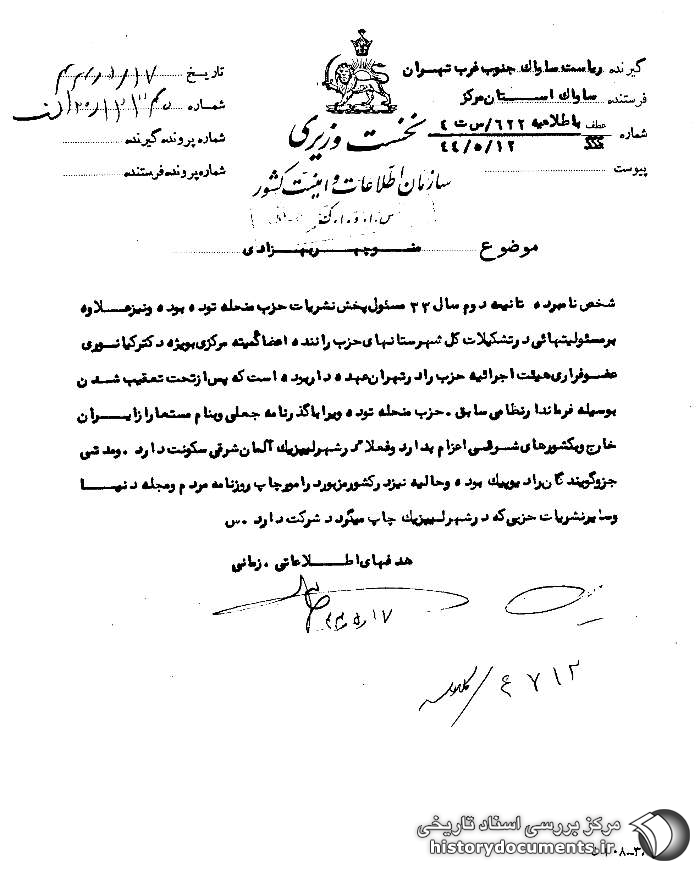 گیرنده ریاست ساواک جنوب غرب تهران
فرستنده ساواک استان مرکز
شماره عطف باطلاعیه ۶۲۲/س ت ۴
۴۴/۵/۱۲
پیوست
تاریخ ۱۷/۵/۴۴
شماره
شماره پرونده گیرنده
شماره پرونده فرستنده
نخست وزیری
سازمان اطلاعات و امنیت کشور
س.ا.و.ا.ک
موضوع منوچهر بهزادی
شخص نامبرده تا نیمه دوم سال ۳۳ مسئول پخش نشریات حزب منحله توده بوده و نیز علاوه
بر مسئولیتهائی در تشکیلات کل شهرستانهای حزب راننده اعضا کمیته مرکزی بویژه دکتر کیانوری
عضو فراری هیئت اجرائیه حزب را در تهران عهده دار بوده است که پس از تحت تعقیب شدن
بوسیله فرماندار نظامی سابق . حزب منحله توده ویرا با گذرنامه جعلی و بنام مستعار از ایران
خارج و بکشورهای شرقی اعزام بدارد و فعلا در شهر لیپزیک آلمان شرقی سکونت دارد . و مدتی
جزو گویندگان رادیو پیک بوده و حالیه نیز در کشور مزبور در امور چاپ روزنامه مردم و مجله دنیا
و سایر نشریات حزبی که در شهر لیپزیک چاپ میگردد شرکت دارد . س
هدفهای اطلاعاتی . زمانی
۱۷/۵/۴۴
۴۷۱۲
مرکز بررسی اسناد تاریخی
historydocuments.ir